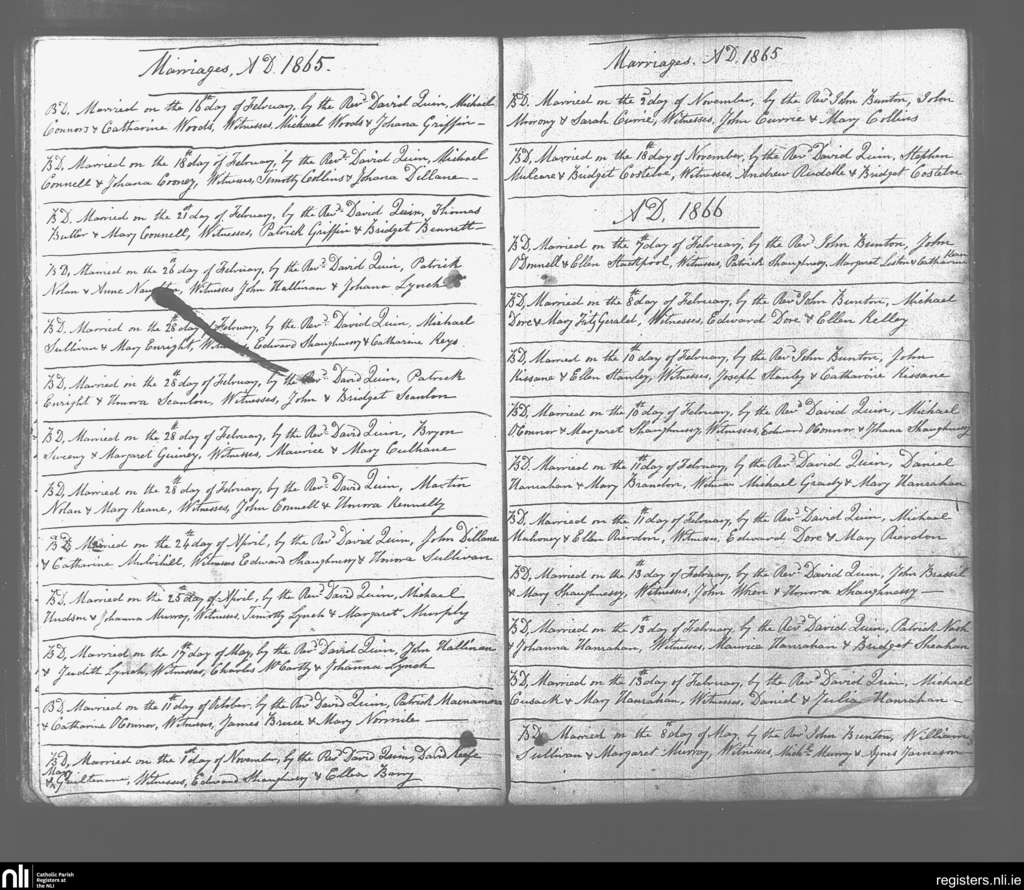 Marriages, A D. 1865.
BD, Married on the 16th day of February, by the Revd David Quin, Michael
Connors & Catharine Woods, Witnesses, Michael Woods & Johana Griffin –
BD, Married on the 18th day of February, by the Revd David Quin, Michael
Connell & Johana Cooney, Witnesses, Timothy Collins & Johana Dillane –
BD. Married on the 21st day of February, by the Revd David Quin, Thomas
Butler & Mary Connell, Witnesses, Patrick Griffin & Bridget Bennett –
BD, Married on the 26th day of February, by the Revd David Quin, Patrick
Nolan & Anne Naughton, Witnesses John Hallinan & Johana Lynch
BD. Married on the 28th day of February, by the Revd David Quin, Michael
Sullivan & Mary Enright, Witnesses Edward Shaughnessy & Catharine Keys.
BD, Married on the 28th day of February, by the Revd David Quin, Patrick
Enright & Honora Scanlon, Witnesses, John & Bridget Scanlon
BD, Married on the 28th day of February, by the Revd David Quin, Bryon
Sweeny & Margaret Guiney, Witnesses, Maurice & Mary Culhane
BD, Married on the 28th day of February, by the Revd David Quin, Martin
Nolan & Mary Keane, Witnesses, John Connell & Honora Kennelly
BD Married on the 24th day of April, by the Revd David Quin, John Dillane
& Catharine Mulvihill, Witnesses Edward Shaughnessy & Honora Sullivan
BD, Married on the 25th day of April, by the Revd David Quin, Michael
Hudson & Johanna Murray, Witnesses, Timothy Lynch & Margaret Murphy
BD, Married on the 19th day of May, by the Revd David Quin, John Hallinan
& Judith Lynch, Witnesses, Charles McCarthy & Johanna Lynch
BD, Married on the 11th day of October, by the Revd David Quin, Patrick Macnamara
& Catharine O'Connor, Witnesses, James Bruce & Mary Normile –
BD, Married on the 1st day of November, by the Revd David Quin, David Keefe
& Mary Guiltenane, Witnesses, Edward Shaughnessy & Ellen Barry
Marriages. A D. 1865
BD. Married on the 2d day of November, by the Revd John Bunton, John
Morony & Sarah Currie, Witnesses, John Currie & Mary Collins
BD, Married on the 18th day of November, by the Revd David Quin, Stephen
Mulcare & Bridget Costeloe, Witnesses, Andrew Ruddle & Bridget Costeloe
A D. 1866
BD, Married on the 7th day of February, by the Revd John Bunton, John
O'Donnell & Ellen Stackpool, Witnesses, Patrick Shaughnessy, Margaret & Catharine
BD, Married on the 8th day of February, by the Revd John Bunton, Michael
Dore & Mary FitzGerald, Witnesses, Edward Dore & Ellen Kelley
BD, Married on the 10th day of February, by the Revd John Bunton, John
Kissane & Ellen Stanley, Witnesses, Joseph Stanley & Catharine Kissane
BD, Married on the 10th day of February, by the Revd David Quin, Michael
O'Connor & Margaret Shaughnessy, Witnesses, Edward O'Connor & Johana Shaughnessy
BD. Married on the 11th day of February, by the Revd David Quin, Daniel
Hanrahan & Mary Brandon, Witnesses Michael Grady & Mary Hanrahan
BD, Married on the 11th day of February, by the Revd David Quin, Michael
Mahoney & Ellen Riordon, Witnesses, Edward Dore & Mary Riordon
BD, Married on the 13th day of February, by the Revd David Quin, John Brassil
& Mary Shaughnessy, Witnesses, John Wren & Honora Shaughnessy –
BD, Married on the 13th day of February by the Revd David Quin, Patrick Nash
& Johanna Hanrahan, Witnesses, Maurice Hanrahan & Bridget Sheahan
BD, Married on the 13th day of February, by the Revd David Quin, Michael
Cusack & Mary Hanrahan, Witnesses, Daniel & Julia Hanrahan –
BD. Married on the 8th day of May, by the Revd John Bunton, William
Sullivan & Margaret Murray, Witnesses, Michl Murray & Agnes Jameson
nli
Catholic Parish
Registers at
the NLI
registers.nli.ie